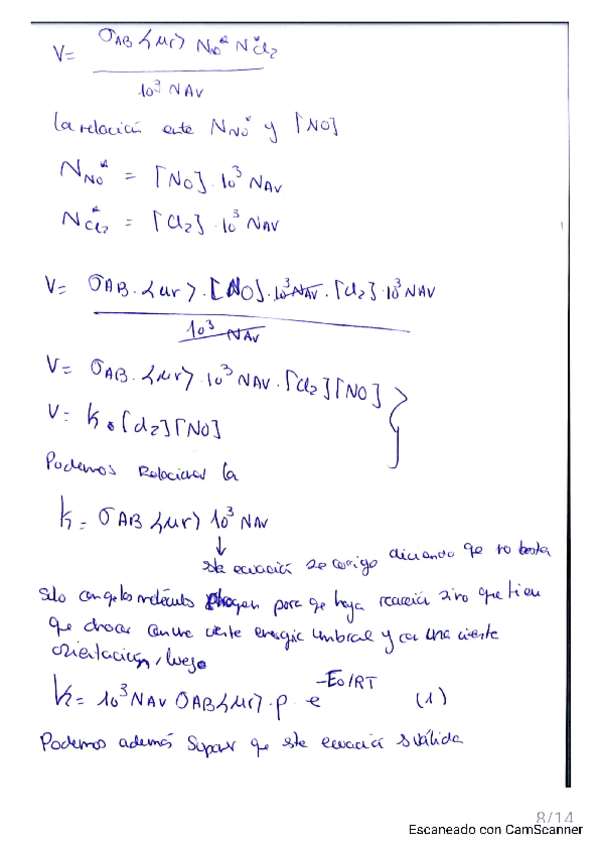 V= σAB <μr> N_NO* N_Cl2* / 10³ NAV
la relación ente N_NO* y [NO]
N_NO* = [NO]. 10³ NAV
N_Cl2* = [Cl2] . 10³ NAV
V= σAB. <μr>. [NO]. 10³ NAV. [Cl2] 10³ NAV / 10³ NAV
V= σAB. <μr> 10³ NAV. [Cl2][NO]
V= k. [Cl2][NO]
Podemos Relacionar la
k= σAB <μr> 10³ NAV
↓
este ecuación se corrige diciendo que no basta
Solo con que las moléculas choquen para que haya reacción sino que tien
que chocar con una cierte energía umbral y con una cierte
orientación, luego
k= 10³ NAV σAB <μr>. p e^(-E0/RT) (1)
Podemos además Suponer que este ecuación s válida
8/14
Escaneado con CamScanner